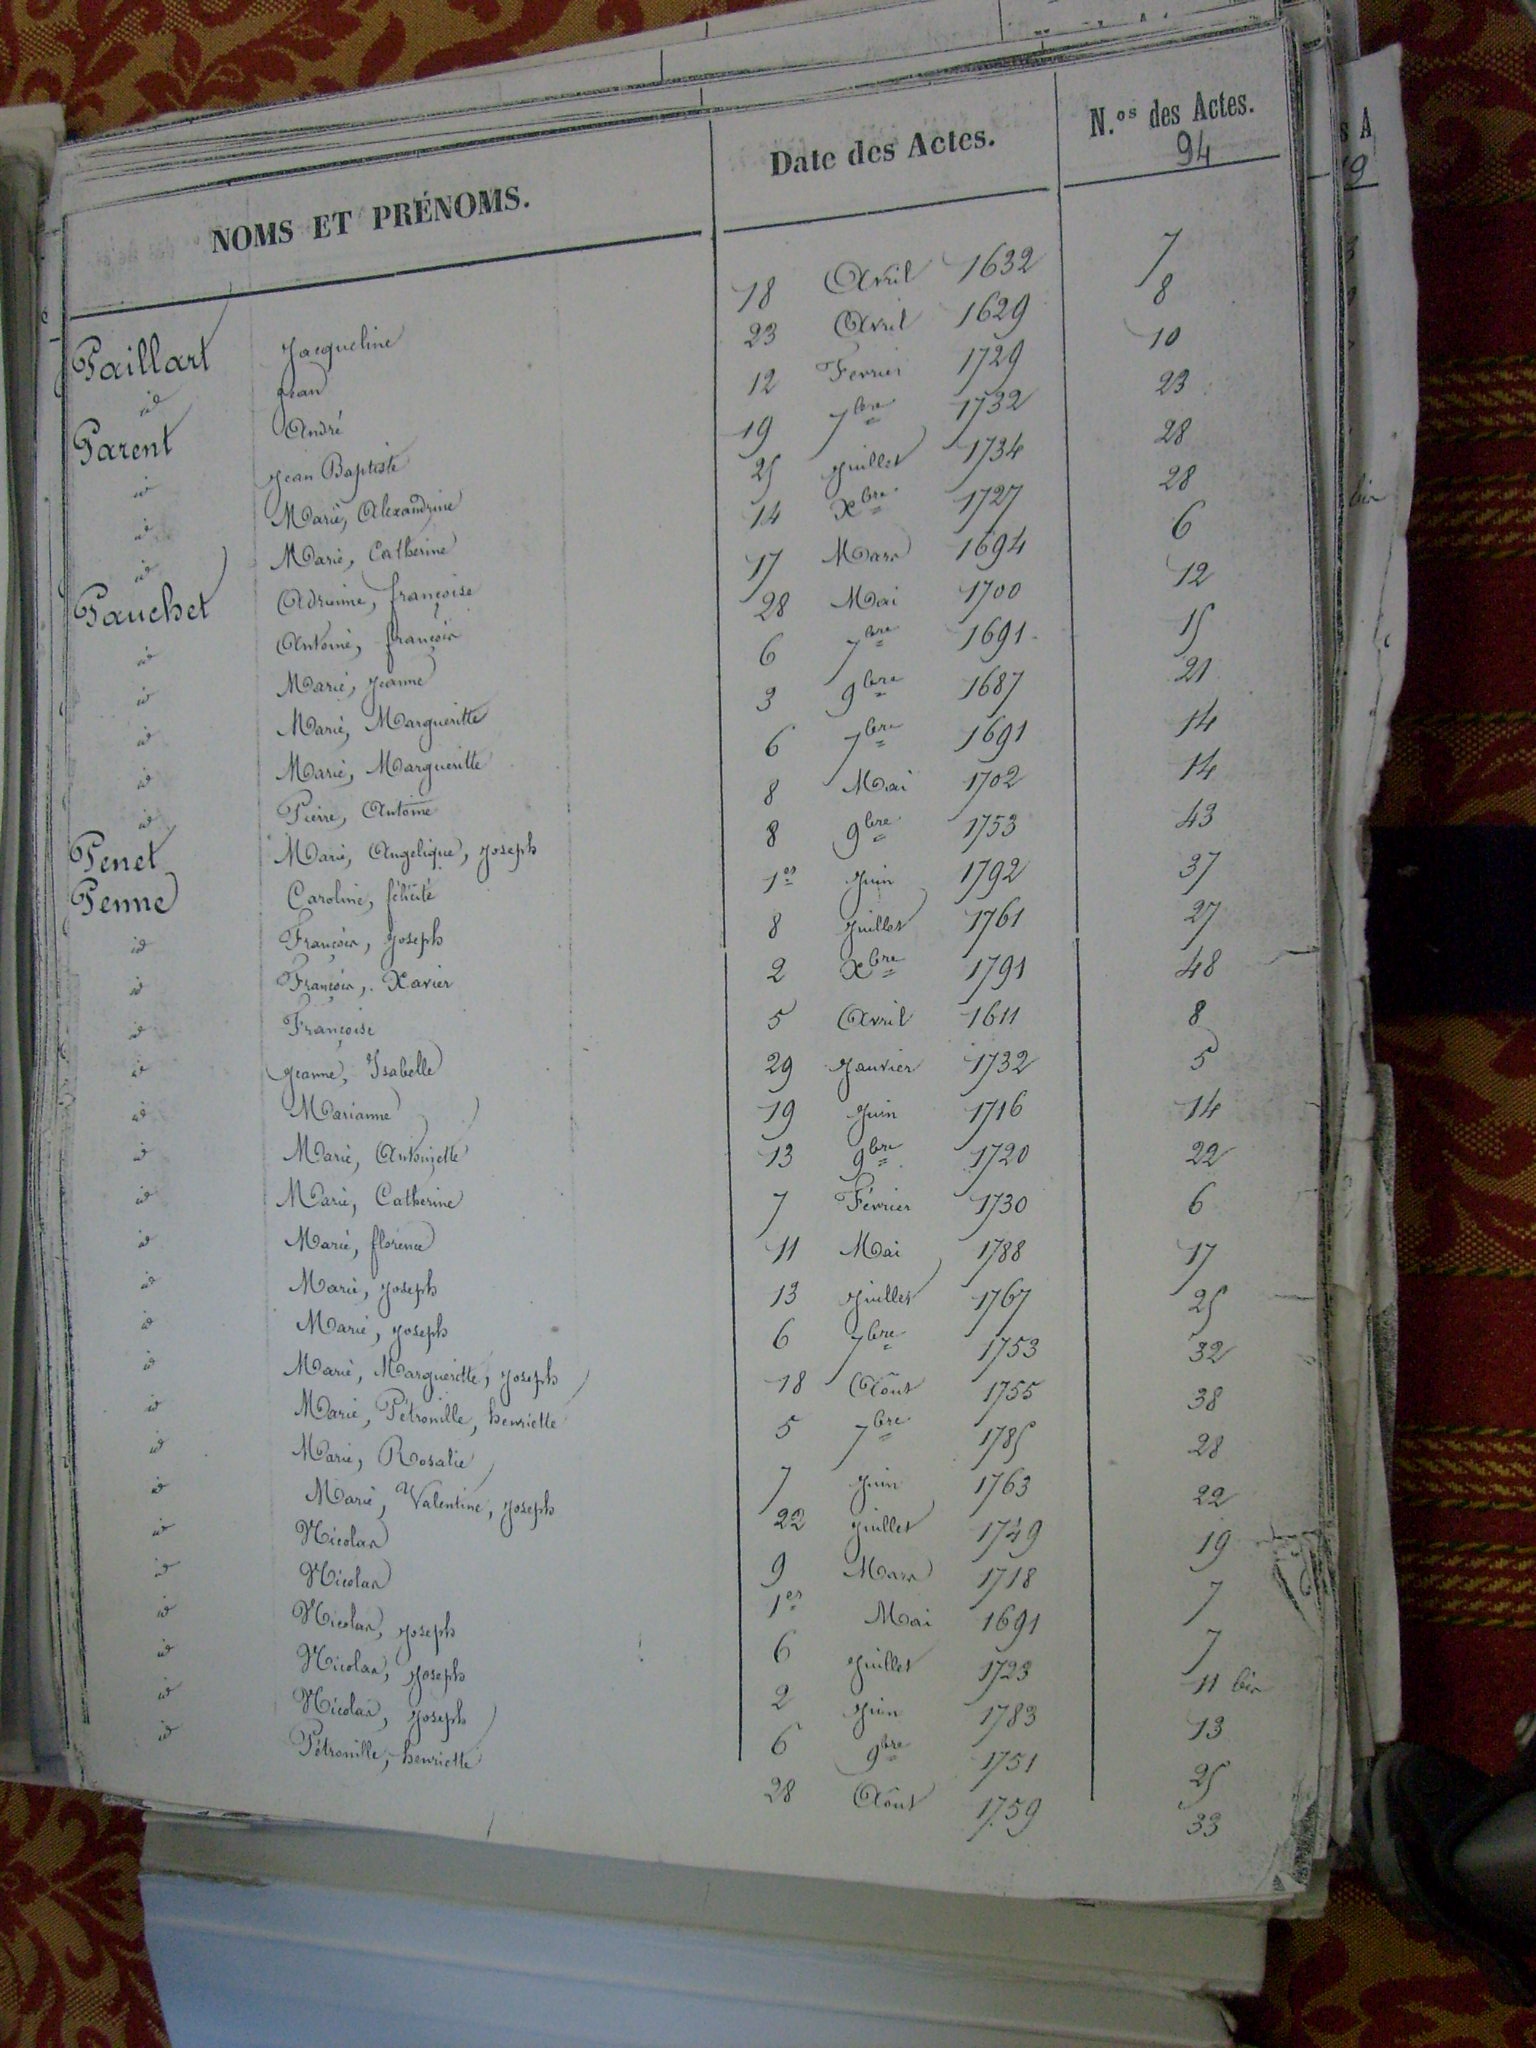 NOMS ET PRÉNOMS. Date des Actes. N.os des Actes.
94
Paillart Jacqueline 18 Avril 1632 7
id Jean 23 Avril 1629 8
Parent André 12 Fevrier 1729 10
id Jean Baptiste 19 7bre 1732 23
id Marie, Alexandrine 25 Juillet 1734 28
id Marie, Catherine 14 Xbre 1727 28
Pauchet Adrienne, françoise 17 Mars 1694 6
id Antoine, françois 28 Mai 1700 12
id Marie, Jeanne 6 7bre 1691 15
id Marie, Margueritte 3 9bre 1687 21
id Marie, Margueritte 6 7bre 1691 14
id Pierre, Antoine 8 Mai 1702 14
Penet Marie, Angelique, Joseph 8 9bre 1753 43
Penne Caroline, félicité 1er Juin 1792 37
id François, Joseph 8 Juillet 1761 27
id François, Xavier 2 Xbre 1791 48
id Françoise 5 Avril 1611 8
id Jeanne, Isabelle 29 Janvier 1732 5
id Marianne 19 Juin 1716 14
id Marie, Antoinette 13 9bre 1720 22
id Marie, Catherine 7 Février 1730 6
id Marie, florence 11 Mai 1788 17
id Marie, Joseph 13 Juillet 1767 25
id Marie, Joseph 6 7bre 1753 32
id Marie, Margueritte, Joseph 18 Août 1755 38
id Marie, Pétronille, henriette 5 7bre 1785 28
id Marie, Rosalie 7 Juin 1763 22
id Marie, Valentine, Joseph 22 Juillet 1749 19
id Nicolas 9 Mars 1718 7
id Nicolas 1er Mai 1691 7
id Nicolas, Joseph 6 Juillet 1723 11 bis
id Nicolas, Joseph 2 Juin 1783 13
id Nicolas, Joseph 6 9bre 1751 25
id Pétronille, henriette 28 Août 1759 33